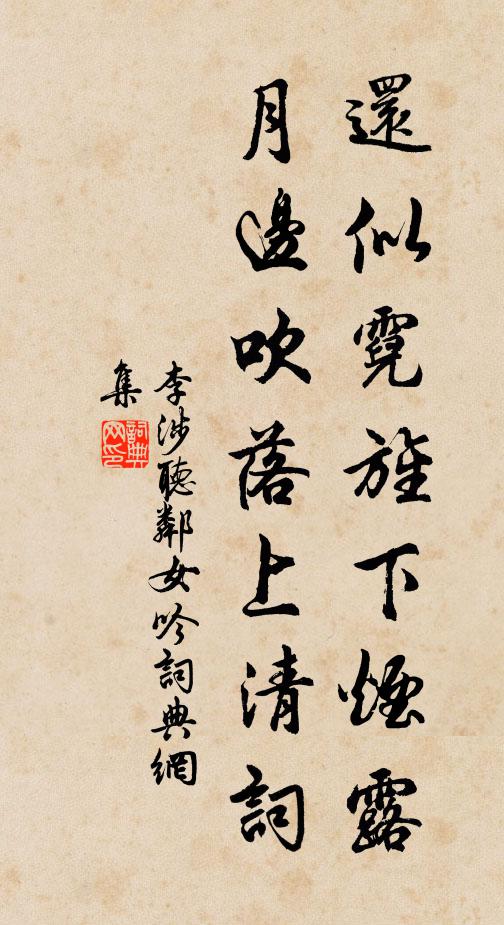 還似霓旌下煙露
月邊吹落上清詞
李涉聽鄰女吟詞典網
集
詞典網印